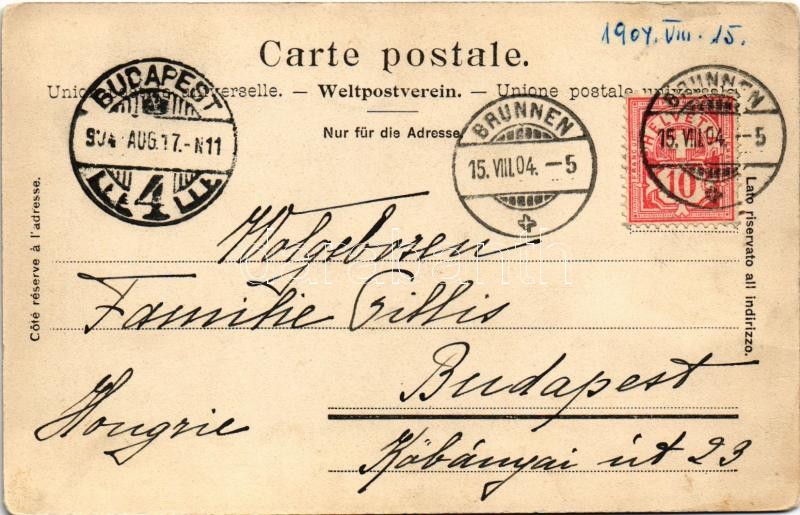 1904. VIII. 15.
Carte postale.
Union postale universelle. — Weltpostverein. — Unione postale universale.
Nur für die Adresse.
BUDAPEST
904 AUG. 17. - N11
4
BRUNNEN
15. VIII. 04. – 5
BRUNNEN
15. VIII. 04. – 5
HELVETIA
10
Côté réserve à l'adresse.
Lato riservato all indirizzo.
Wolgeboren
Familie Gillis
Budapest
Hongrie
Kőbányai út 23
darabanth